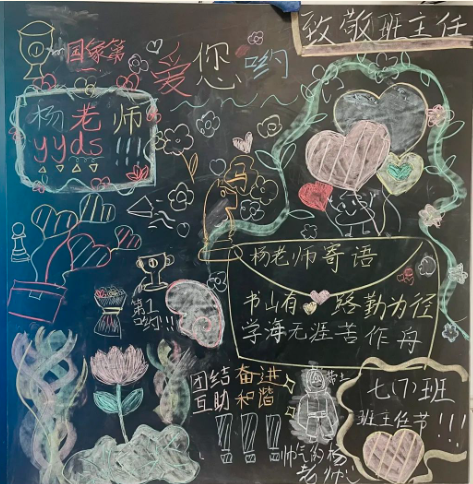 致敬班主任
国家第一
爱您哟
杨老师
yyds!!!
杨老师寄语
书山有路勤为径
学海无涯苦作舟
第1
团结奋进
互助和谐
!!!
七(7)班
班主任节!!!
帅气的杨
老师